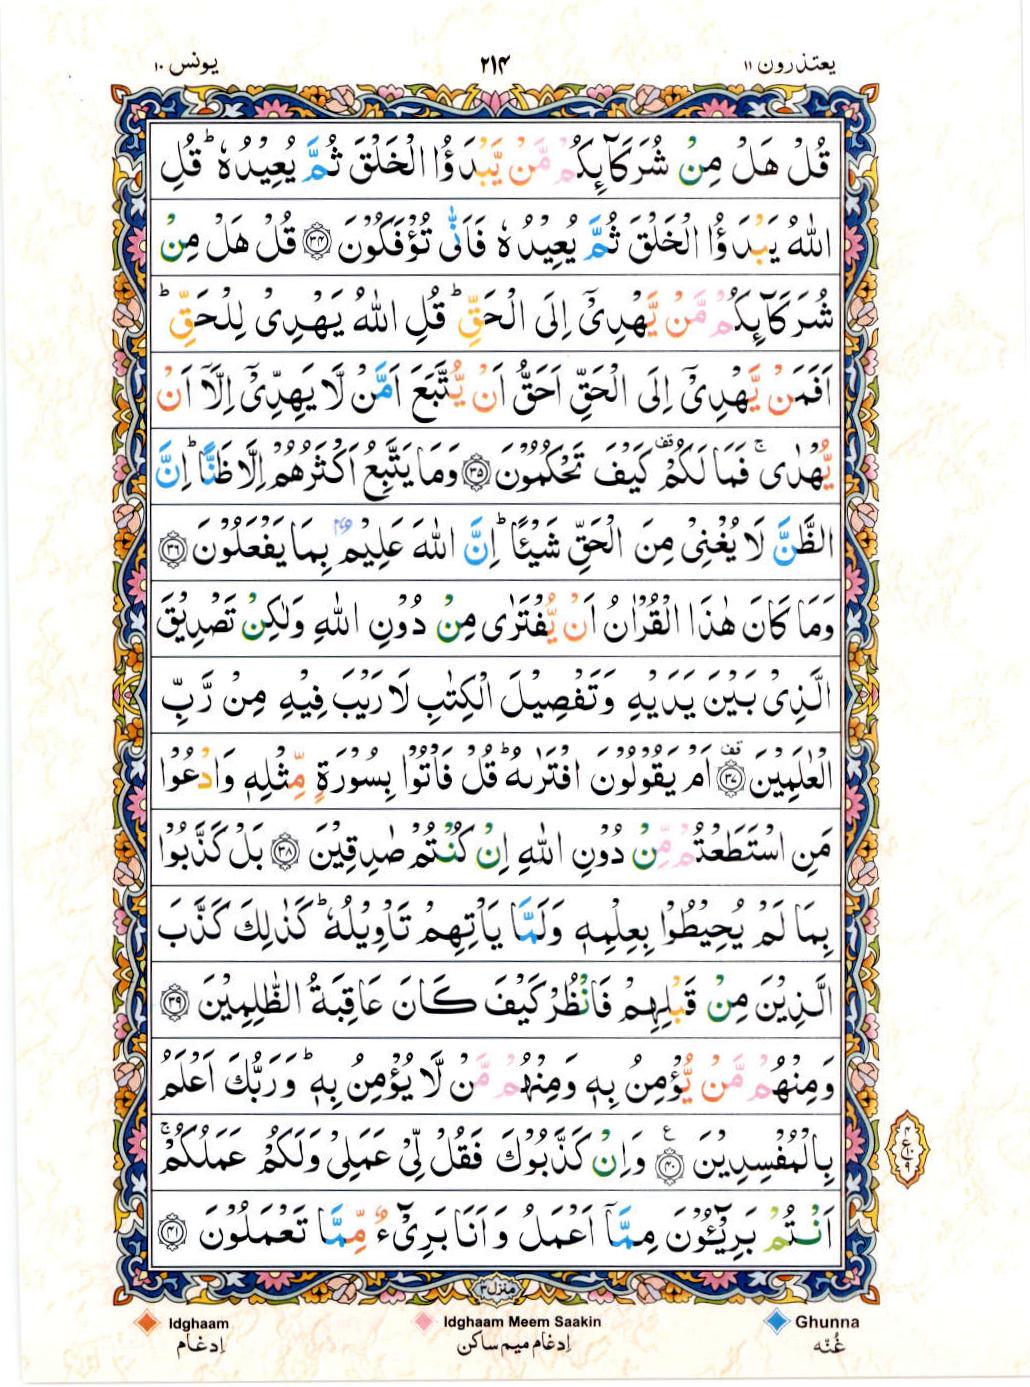 یعتذرون ۱۱
۲۱۴
یونس ۱۰
قُلْ هَلْ مِنْ شُرَكَآىِٕكُمْ مَّنْ یَّبْدَؤُا الْخَلْقَ ثُمَّ یُعِیْدُهٗ ؕ قُلِ
اللّٰهُ یَبْدَؤُا الْخَلْقَ ثُمَّ یُعِیْدُهٗ فَاَنّٰى تُؤْفَكُوْنَ ﴿۳۴﴾ قُلْ هَلْ مِنْ
شُرَكَآىِٕكُمْ مَّنْ یَّهْدِیْۤ اِلَى الْحَقِّ ؕ قُلِ اللّٰهُ یَهْدِیْ لِلْحَقِّ ؕ
اَفَمَنْ یَّهْدِیْۤ اِلَى الْحَقِّ اَحَقُّ اَنْ یُّتَّبَعَ اَمَّنْ لَّا یَهِدِّیْۤ اِلَّاۤ اَنْ
یُّهْدٰى ۚ فَمَا لَكُمْ ۫ كَیْفَ تَحْكُمُوْنَ ﴿۳۵﴾ وَمَا یَتَّبِعُ اَكْثَرُهُمْ اِلَّا ظَنًّا ؕ اِنَّ
الظَّنَّ لَا یُغْنِیْ مِنَ الْحَقِّ شَیْـًٔا ؕ اِنَّ اللّٰهَ عَلِیْمٌۢ بِمَا یَفْعَلُوْنَ ﴿۳۶﴾
وَمَا كَانَ هٰذَا الْقُرْاٰنُ اَنْ یُّفْتَرٰى مِنْ دُوْنِ اللّٰهِ وَلٰكِنْ تَصْدِیْقَ
الَّذِیْ بَیْنَ یَدَیْهِ وَتَفْصِیْلَ الْكِتٰبِ لَا رَیْبَ فِیْهِ مِنْ رَّبِّ
الْعٰلَمِیْنَ ﴿۳۷﴾ ۫ اَمْ یَقُوْلُوْنَ افْتَرٰىهُ ؕ قُلْ فَاْتُوْا بِسُوْرَةٍ مِّثْلِهٖ وَادْعُوْا
مَنِ اسْتَطَعْتُمْ مِّنْ دُوْنِ اللّٰهِ اِنْ كُنْتُمْ صٰدِقِیْنَ ﴿۳۸﴾ بَلْ كَذَّبُوْا
بِمَا لَمْ یُحِیْطُوْا بِعِلْمِهٖ وَلَمَّا یَاْتِهِمْ تَاْوِیْلُهٗ ؕ كَذٰلِكَ كَذَّبَ
الَّذِیْنَ مِنْ قَبْلِهِمْ فَانْظُرْ كَیْفَ كَانَ عَاقِبَةُ الظّٰلِمِیْنَ ﴿۳۹﴾
وَمِنْهُمْ مَّنْ یُّؤْمِنُ بِهٖ وَمِنْهُمْ مَّنْ لَّا یُؤْمِنُ بِهٖ ؕ وَرَبُّكَ اَعْلَمُ
بِالْمُفْسِدِیْنَ ﴿۴۰﴾ ع وَاِنْ كَذَّبُوْكَ فَقُلْ لِّیْ عَمَلِیْ وَلَكُمْ عَمَلُكُمْ ۚ
اَنْتُمْ بَرِیْٓـُٔوْنَ مِمَّاۤ اَعْمَلُ وَاَنَا بَرِیْٓءٌ مِّمَّا تَعْمَلُوْنَ ﴿۴۱﴾
منزل ۳
Idghaam Idghaam Meem Saakin Ghunna
اِدغام اِدغام میم ساکن غُنّه